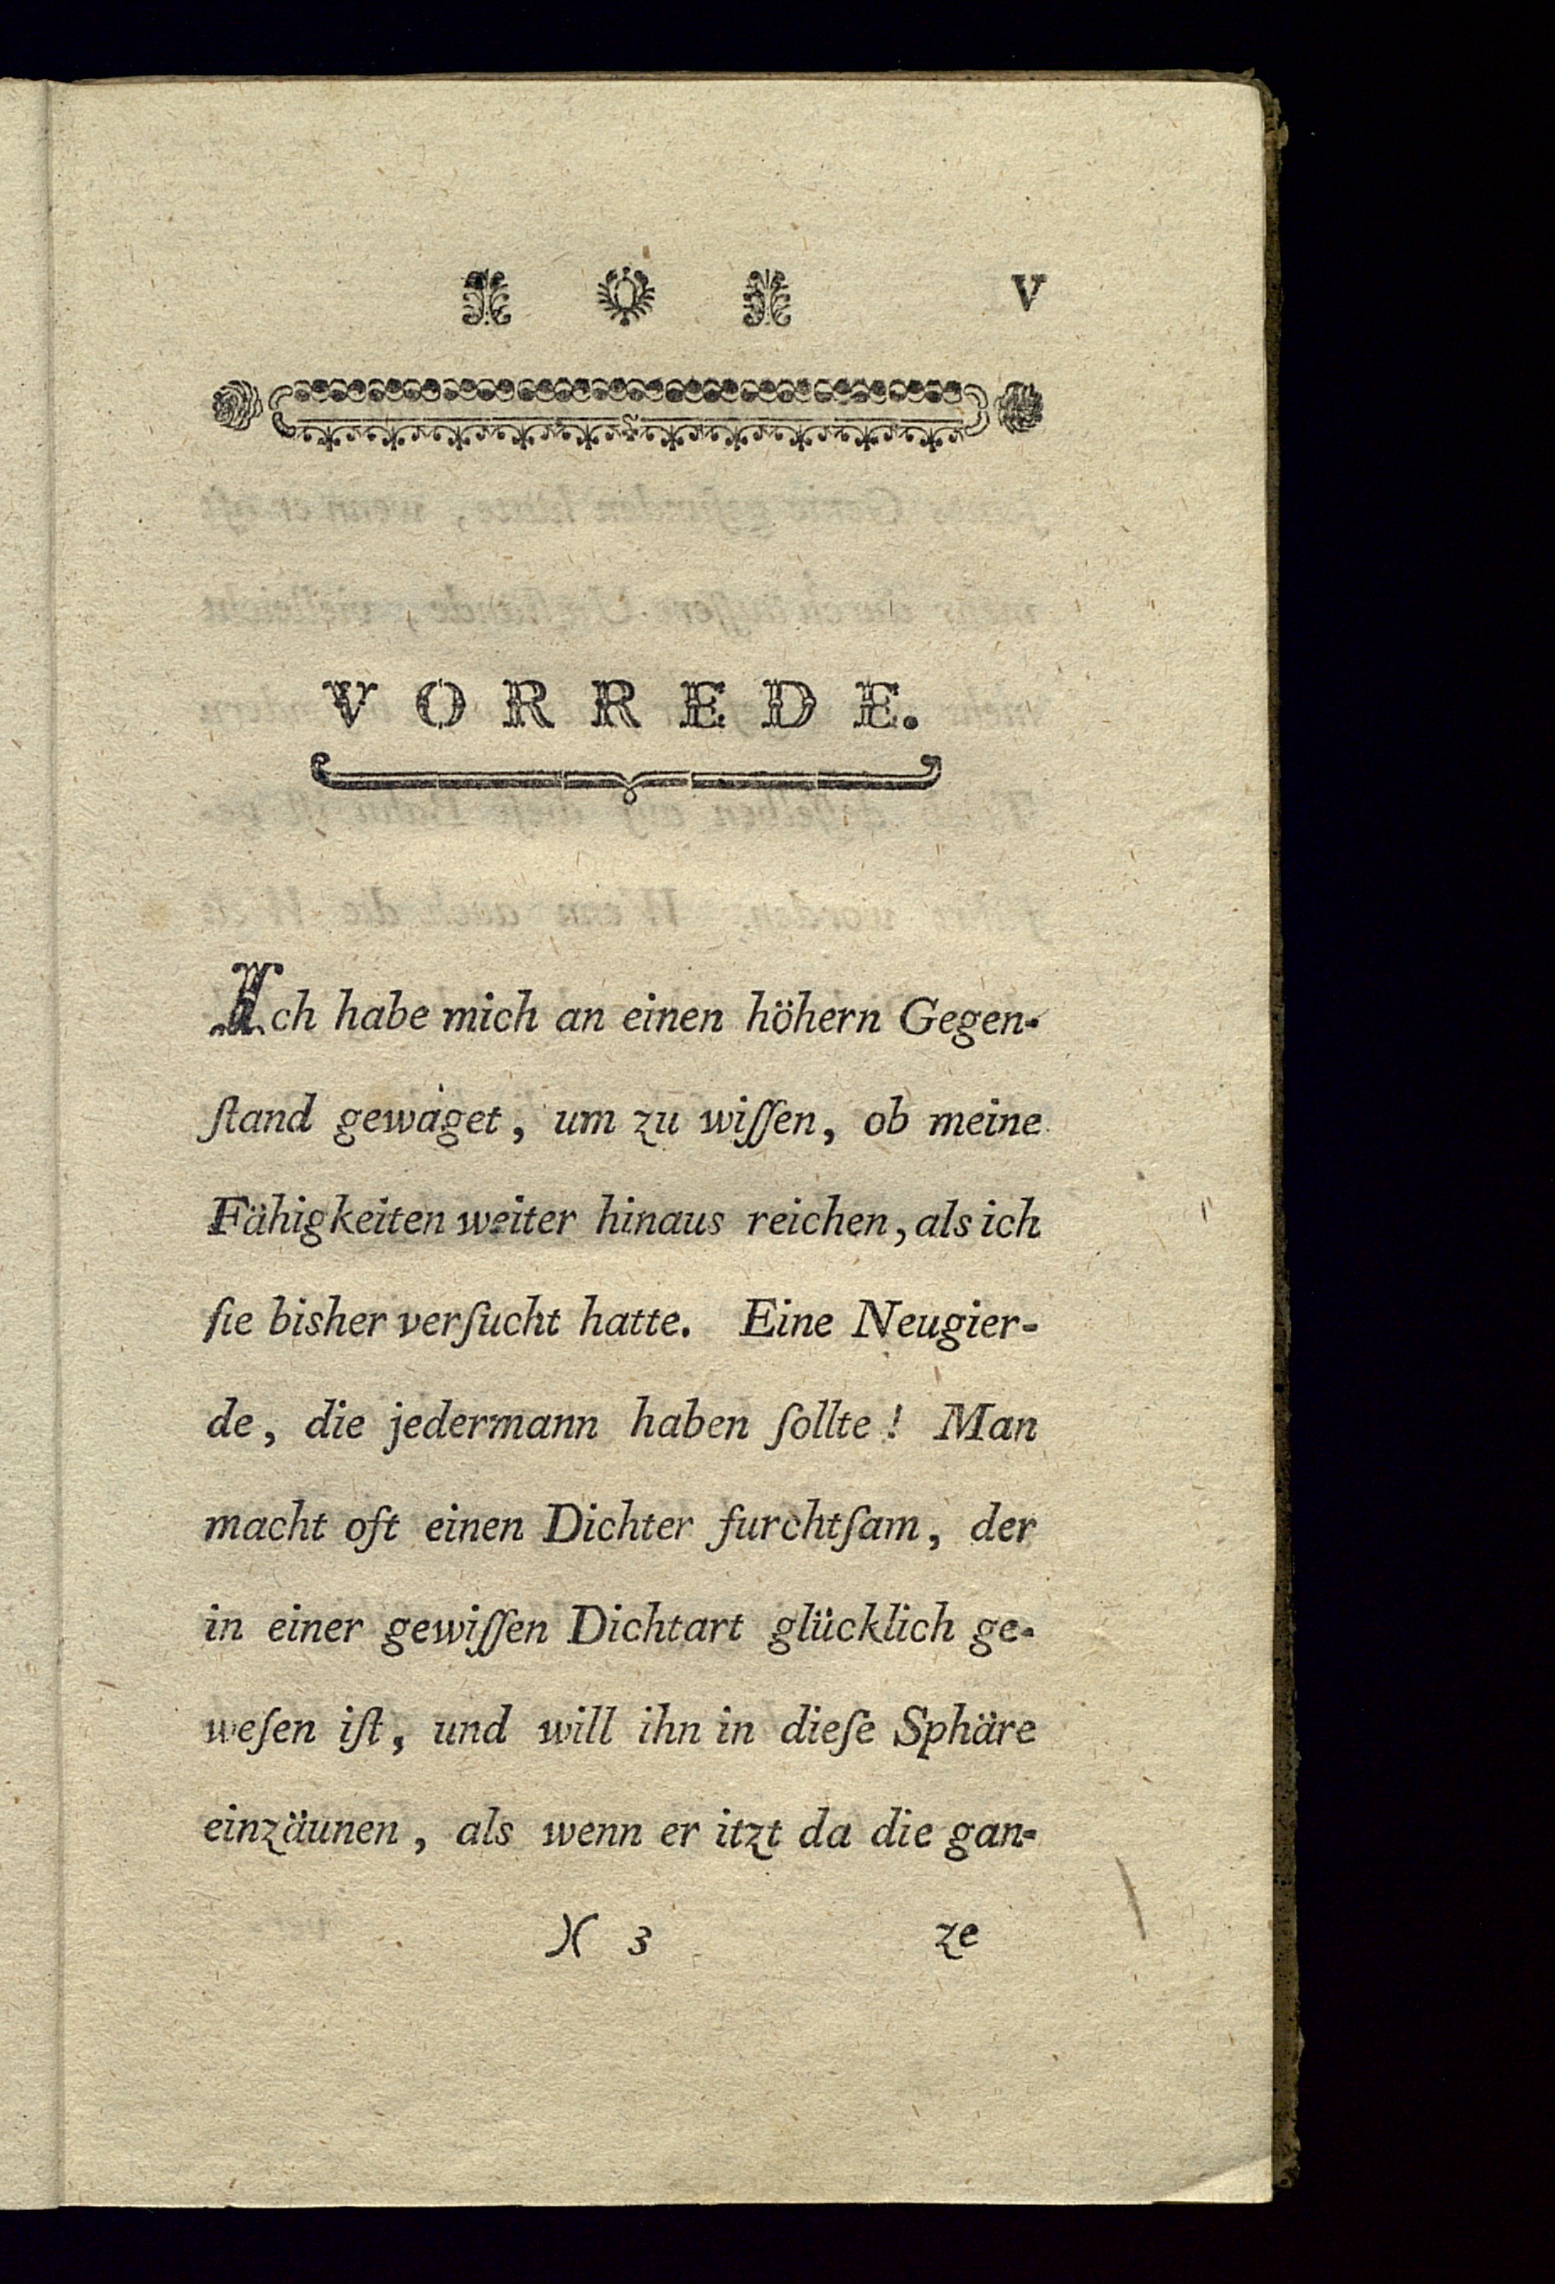 V
VORREDE.
Ich habe mich an einen höhern Gegen-
ſtand gewaget, um zu wiſſen, ob meine
Fähigkeiten weiter hinaus reichen, als ich
ſie bisher verſucht hatte. Eine Neugier-
de, die jedermann haben ſollte! Man
macht oft einen Dichter furchtſam, der
in einer gewiſſen Dichtart glücklich ge-
weſen iſt, und will ihn in dieſe Sphäre
einzäunen, als wenn er itzt da die gan-
)( 3 ze